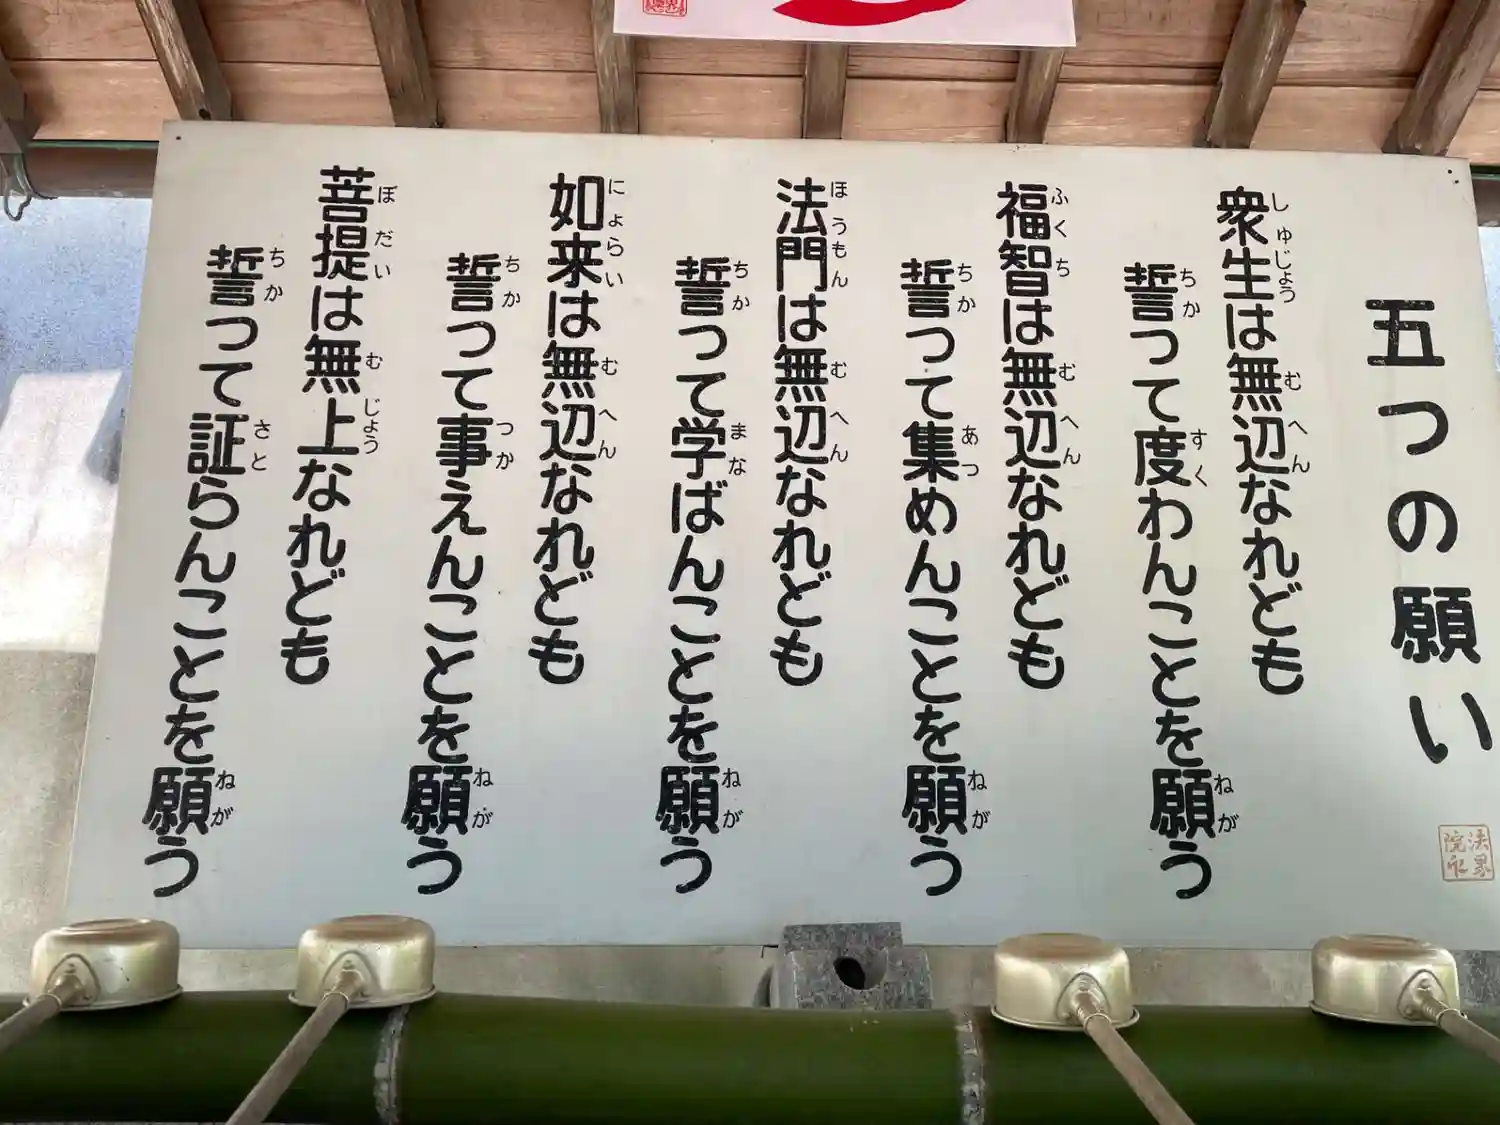 五つの願い
衆生は無辺なれども
誓って度わんことを願う
福智は無辺なれども
誓って集めんことを願う
法門は無辺なれども
誓って学ばんことを願う
如来は無辺なれども
誓って事えんことを願う
菩提は無上なれども
誓って証らんことを願う